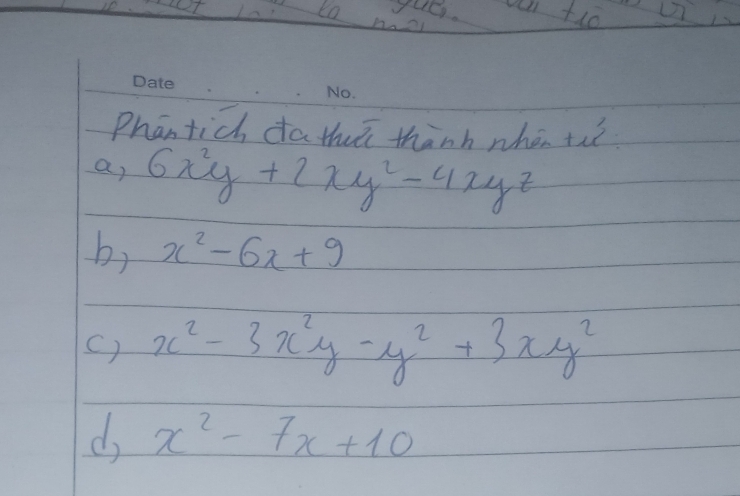 Date . . . No.
Phân tích đa thức thành nhân tử:
a, 6x²y + 2xy² - 4xyz
b, x² - 6x + 9
c, x² - 3x²y - y² + 3xy²
d, x² - 7x + 10